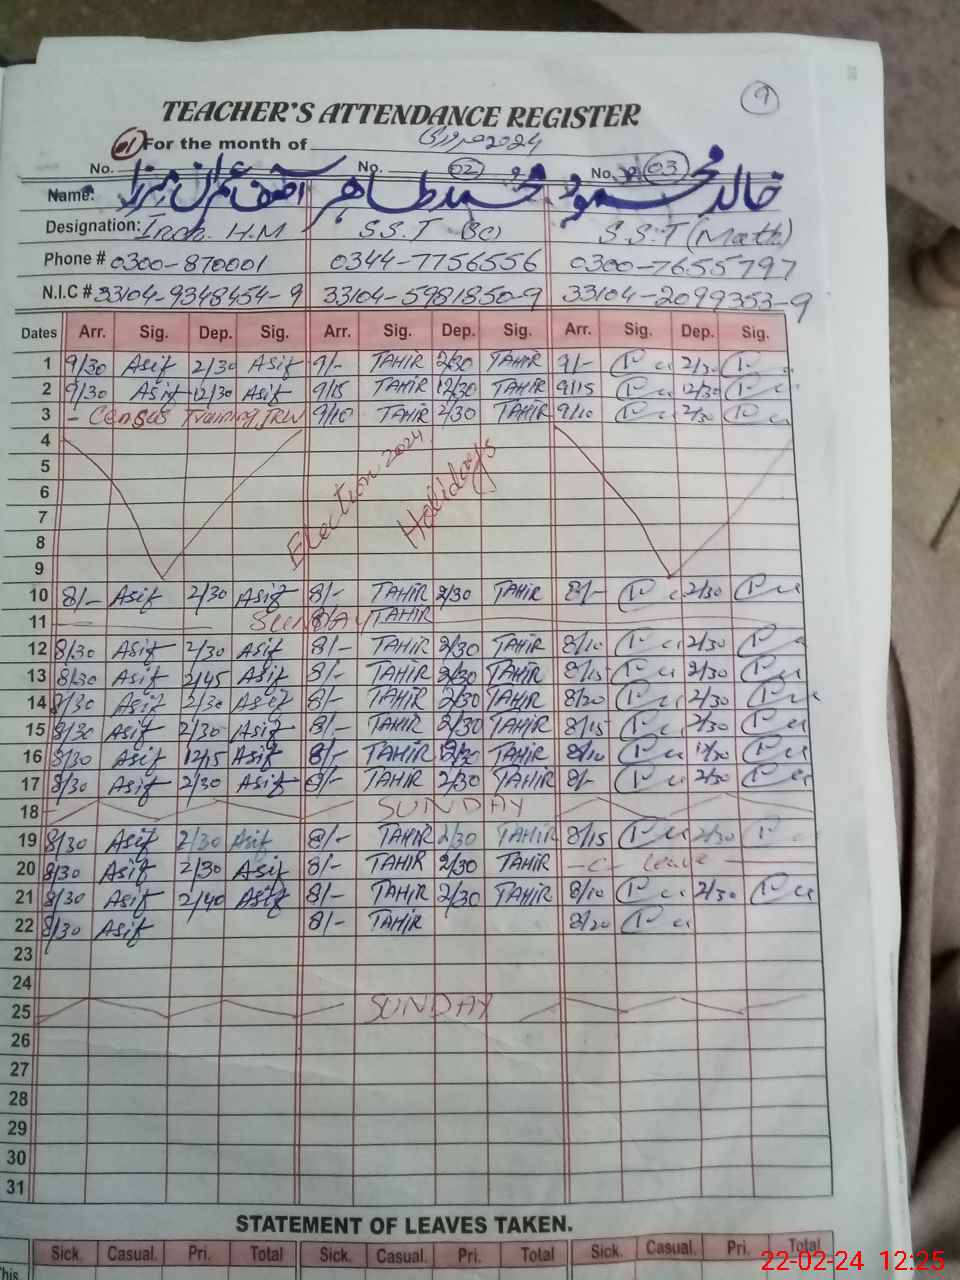 9
TEACHER'S ATTENDANCE REGISTER
01 For the month of فروری 2024
No. No. 02 No. 03
Name: آصف عمران مرزا محمد طاہر خالد محمود
Designation: Inch. H.M S.S.T (Sc) S.S.T (Math)
Phone # 0300-870001 0344-7756556 0300-7655797
N.I.C # 33104-9348454-9 33104-5981850-9 33104-2099353-9
Dates Arr. Sig. Dep. Sig. Arr. Sig. Dep. Sig. Arr. Sig. Dep. Sig.
1 9/30 Asif 2/30 Asif 9/- TAHIR 2/30 TAHIR 9/- 2/30
2 9/30 Asif 12/30 Asif 9/15 TAHIR 12/30 TAHIR 9/15 12/30
3 - Census Training JRW 9/10 TAHIR 2/30 TAHIR 9/10 2/30
4
5
6
7
8
9
Election 2024
Holidays
10 8/- Asif 2/30 Asif 8/- TAHIR 2/30 TAHIR 8/- 2/30
11 SUNDAY 8/- TAHIR
12 8/30 Asif 2/30 Asif 8/- TAHIR 2/30 TAHIR 8/10 2/30
13 8/30 Asif 2/45 Asif 8/- TAHIR 2/30 TAHIR 8/15 2/30
14 8/30 Asif 2/30 Asif 8/- TAHIR 2/30 TAHIR 8/20 2/30
15 8/30 Asif 2/30 Asif 8/- TAHIR 2/30 TAHIR 8/15 2/30
16 8/30 Asif 12/15 Asif 8/- TAHIR 12/30 TAHIR 8/10 12/30
17 8/30 Asif 2/30 Asif 8/- TAHIR 2/30 TAHIR 8/- 2/30
18 SUNDAY
19 8/30 Asif 2/30 Asif 8/- TAHIR 2/30 TAHIR 8/15 2/30
20 8/30 Asif 2/30 Asif 8/- TAHIR 2/30 TAHIR - C - Leave
21 8/30 Asif 2/40 Asif 8/- TAHIR 2/30 TAHIR 8/10 2/30
22 8/30 Asif 8/- TAHIR 8/20
23
24
25 SUNDAY
26
27
28
29
30
31
STATEMENT OF LEAVES TAKEN.
Sick. Casual. Pri. Total Sick. Casual. Pri. Total Sick. Casual. Pri. Total
This
22-02-24 12:25